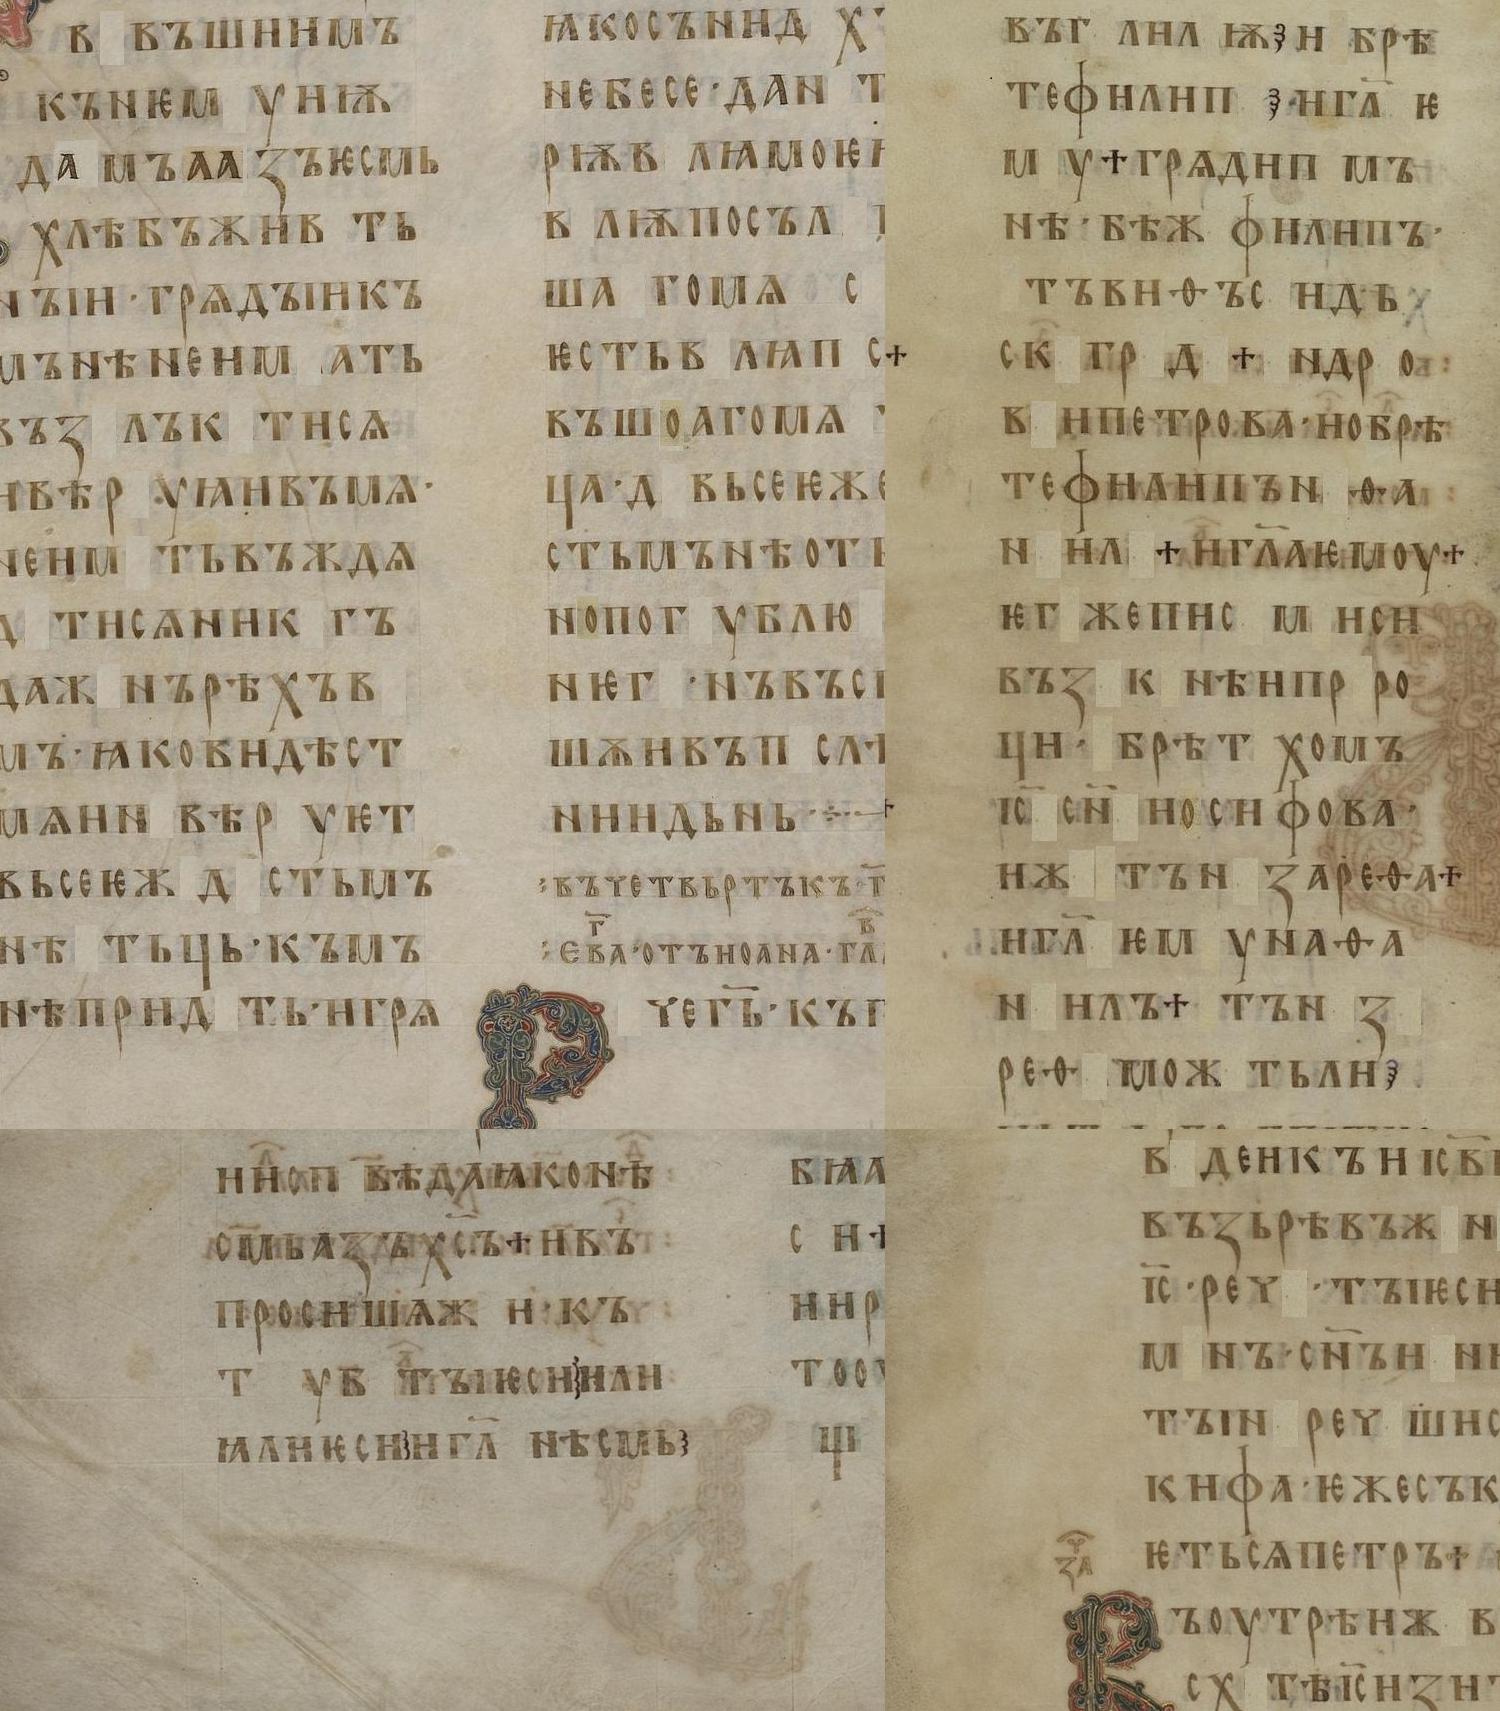 в въшнимъ
кънѥм унѭ
да мъаа зъѥсмь
хлѣбъжив ть
нъіи·грѧдъіикъ
мънѣнеим ать
въз лък тисѧ
ивѣр уꙗивъмѧ·
неим тьвъждѧ
д тисѧиик гъ
даж нърѣхъв
мъ·ꙗковидѣст
мѧии вѣр уѥт
вьсеѥж д стьмъ
нѣ тьць·къмъ
нѣприд ть·игрѧ
ꙗкосънид х
небесе·дан т
рѭв лꙗмоѥ
в лѭпосъл
ша гомѧ с
ѥстьв лꙗп с+
въшоагомѧ
ца·д вьсеѥже
стьмънѣот
нопог ублю
нѥг ·нъвъс
шѫивъп слѣ
ниидьнь
въчетвьртъкъ·
г в
ева·отъиоана·гл
Р чегъ·къ
въг лил ѭзи брѣ
тефилип з·игл ѥ
м у+грѧдип мъ
нѣ·бѣж филипъ·
тъвиѳъс идѣ
ск гр д + ндр о
в ипетрова·иобрѣ
тефилипъи ѳа
и ил +иглаѥмоу+
ѥг жепис м иси
въз к нѣипр ро
ци· брѣт хомъ
іс сн иосифова·
иж тъи зареѳа+
игл ѥм уна·ѳа
и илъ+ тъи з
реѳ мож тьли
ииоп вѣдаꙗконѣ
смьазъхсъ+ивъ
просишѧж и·къ
т ув тъіѥсиили
ꙗлиѥсиигл нѣсмь
бꙗл
с н
иир
тооу
щі
в денкъ н іс
възьрѣвъж н
іс·реч ·тъіѥси
м нъ·снъи н
тъіи реч шис
кифа·ѥжесък
ѥтьсѧпетръ+
за
Въоутрѣиж в
сх тѣісиз